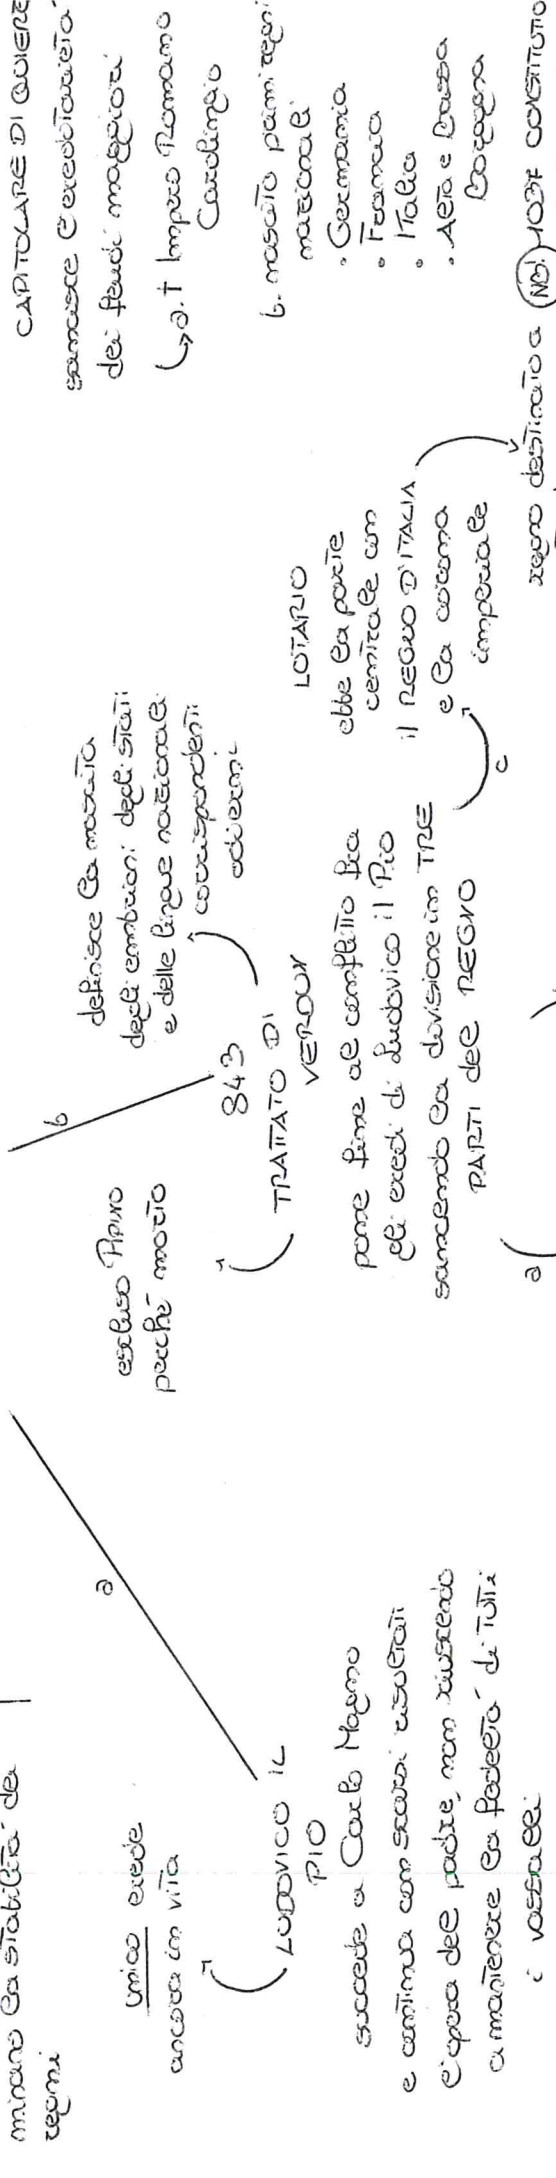 minano la stabilità dei
regni
unico erede
ancora in vita
LUDOVICO IL
PIO
succede a Carlo Magno
e continua con scarsi risultati
l'opera del padre, non riuscendo
a mantenere la fedeltà di tutti
i vassalli
a
b
escluso Pipino
perché morto
843
TRATTATO DI
VERDUN
definisce la nascita
degli embrioni degli stati
e delle lingue nazionali
corrispondenti
odierni
pone fine al conflitto fra
gli eredi di Ludovico il Pio
sancendo la divisione in TRE
PARTI del REGNO
a
c
LOTARIO
ebbe la parte
centrale con
il REGNO D'ITALIA
e la corona
imperiale
regno destinato a
CAPITOLARE DI QUIERZ
sancisce l'ereditarietà
dei feudi maggiori
a. † Impero Romano
Carolingio
b. nascita primi regni
nazionali
• Germania
• Francia
• Italia
• Alta e Bassa
Borgogna
NB! 1037 CONSTITUTIO